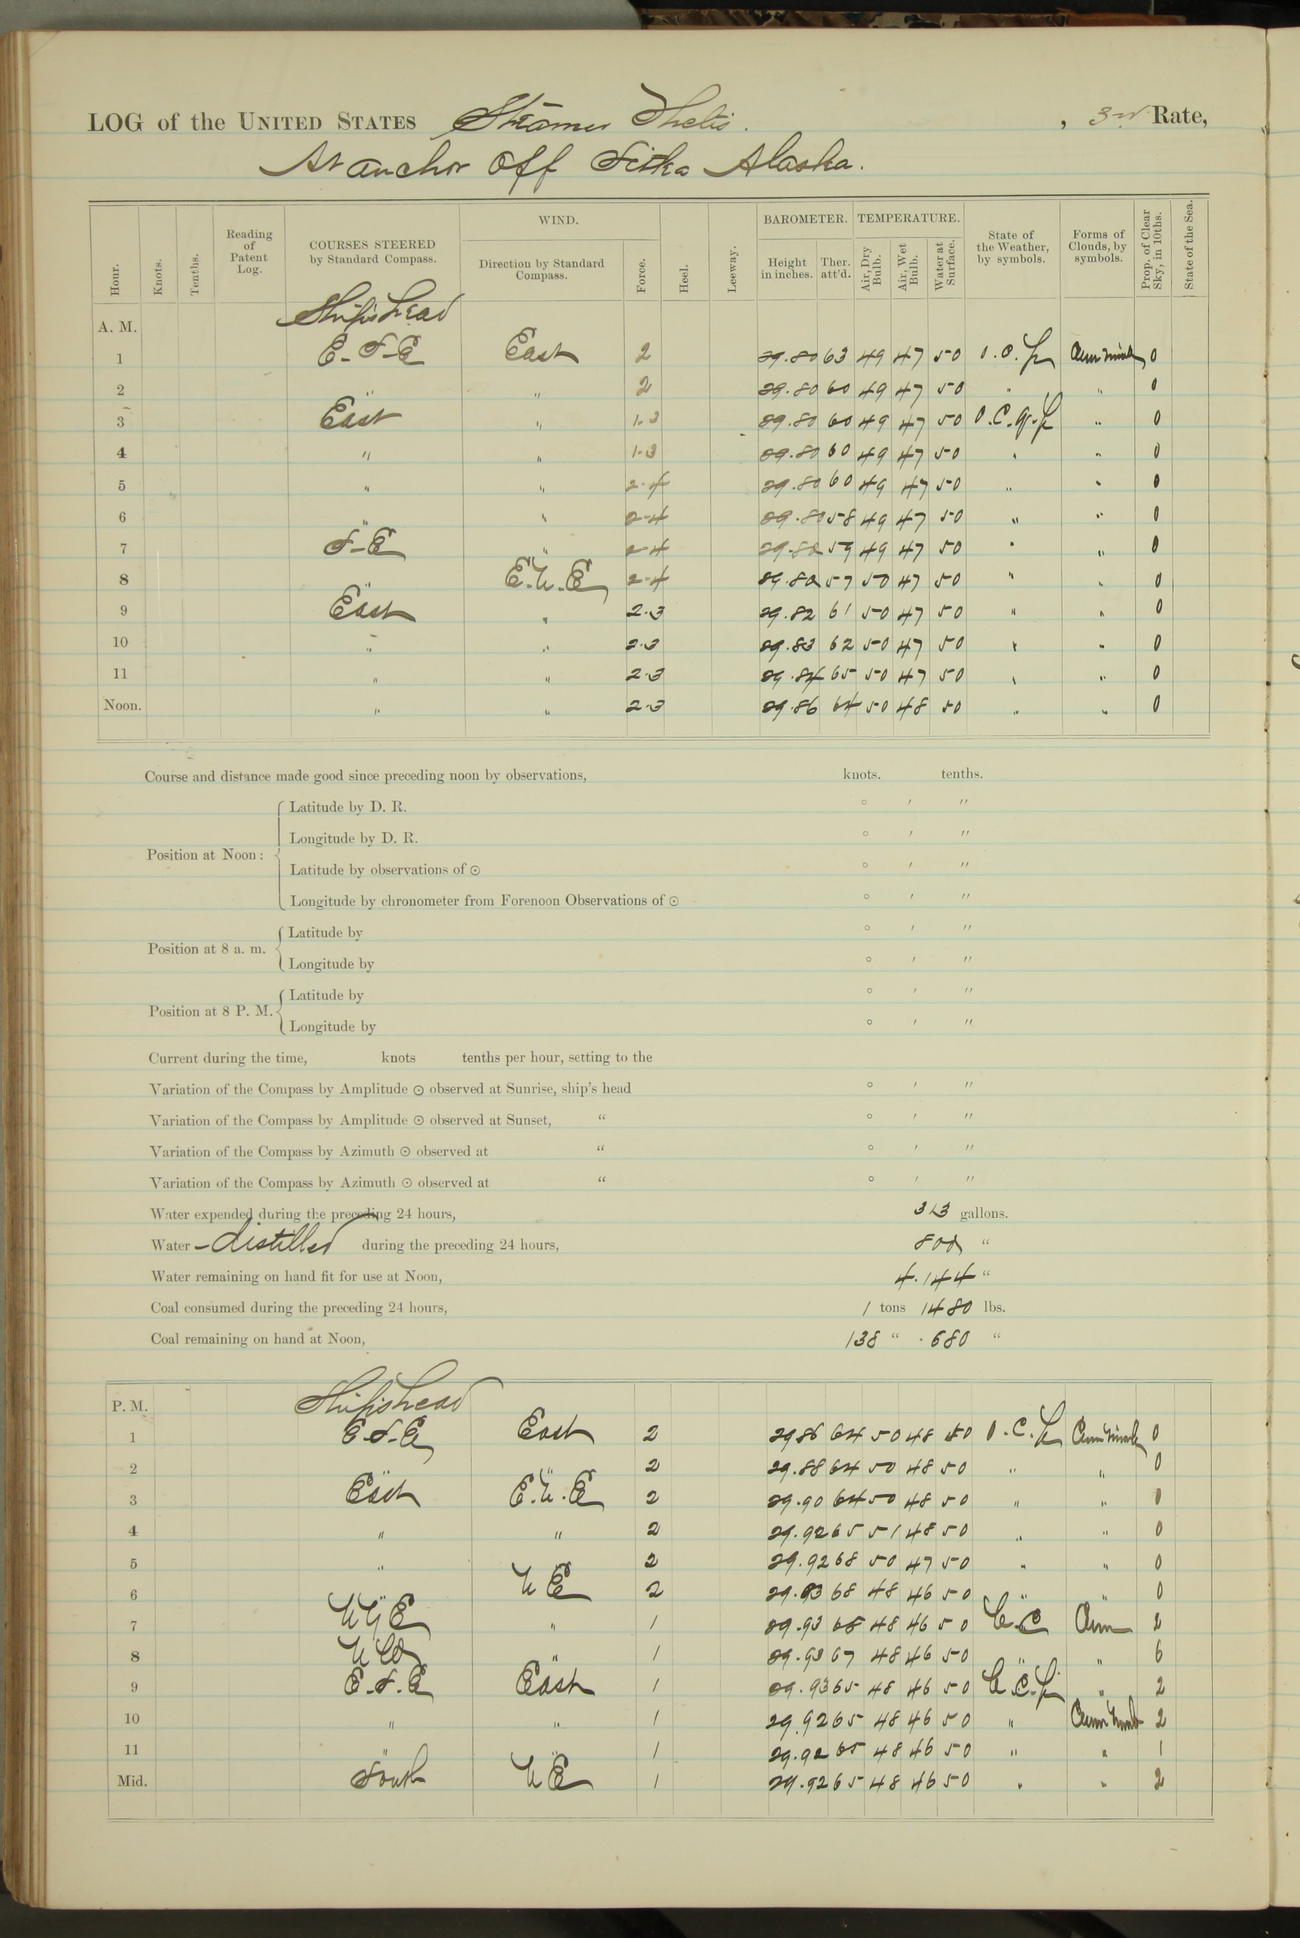 LOG of the UNITED STATES Steamer Thetis. , 3rd Rate,
At anchor off Sitka Alaska.
Hour. Knots. Tenths. Reading of Patent Log. COURSES STEERED by Standard Compass. WIND. Direction by Standard Compass. Force. Heel. Leeway. BAROMETER. Height in inches. Ther. att'd. TEMPERATURE. Air, Dry Bulb. Air, Wet Bulb. Water at Surface. State of the Weather, by symbols. Forms of Clouds, by symbols. Prop. of Clear Sky, in 10ths. State of the Sea.
A. M. Ship's head
1 E-S-E East 2 29.80 63 49 47 50 0
2 " " 2 29.80 60 49 47 50 " " 0
3 East " 1-3 29.80 60 49 47 50 O.C.q.p " 0
4 " " 1-3 29.80 60 49 47 50 " " 0
5 " " 2-4 29.80 60 49 47 50 " " 0
6 " " 2-4 29.80 58 49 47 50 " " 0
7 S-E " 2-4 29.80 59 49 47 50 " " 0
8 " E.N.E 2-4 29.80 57 50 47 50 " " 0
9 East " 2-3 29.82 61 50 47 50 " " 0
10 " " 2-3 29.83 62 50 47 50 " " 0
11 " " 2-3 29.84 65 50 47 50 " " 0
Noon. " " 2-3 29.86 64 50 48 50 " " 0
Course and distance made good since preceding noon by observations, knots. tenths.
Position at Noon: Latitude by D. R. ° ′ ″
Longitude by D. R. ° ′ ″
Latitude by observations of ⊙ ° ′ ″
Longitude by chronometer from Forenoon Observations of ⊙ ° ′ ″
Position at 8 a. m. Latitude by ° ′ ″
Longitude by ° ′ ″
Position at 8 P. M. Latitude by ° ′ ″
Longitude by ° ′ ″
Current during the time, knots tenths per hour, setting to the
Variation of the Compass by Amplitude ⊙ observed at Sunrise, ship's head ° ′ ″
Variation of the Compass by Amplitude ⊙ observed at Sunset, “ ° ′ ″
Variation of the Compass by Azimuth ⊙ observed at “ ° ′ ″
Variation of the Compass by Azimuth ⊙ observed at “ ° ′ ″
Water expended during the preceding 24 hours, 313 gallons.
Water - distilled during the preceding 24 hours, 800 “
Water remaining on hand fit for use at Noon, 4.144 “
Coal consumed during the preceding 24 hours, 1 tons 1480 lbs.
Coal remaining on hand at Noon, 138 “ 680 “
P. M. Ship's head
1 E-S-E East 2 29.86 64 50 48 50 O.C.p 0
2 " " 2 29.88 64 50 48 50 " " 0
3 East E.N.E 2 29.90 64 50 48 50 " " 0
4 " " 2 29.92 65 51 48 50 " " 0
5 " " 2 29.92 68 50 47 50 " " 0
6 " N E 2 29.93 68 48 46 50 " " 0
7 " 1 29.93 68 48 46 50 b.c Cum 2
8 " 1 29.93 67 48 46 50 " " 6
9 E-S-E East 1 29.93 65 48 46 50 b.c.p " 2
10 " " 1 29.92 65 48 46 50 " 2
11 " " 1 29.92 65 48 46 50 " " 1
Mid. South N E 1 29.92 65 48 46 50 " " 2